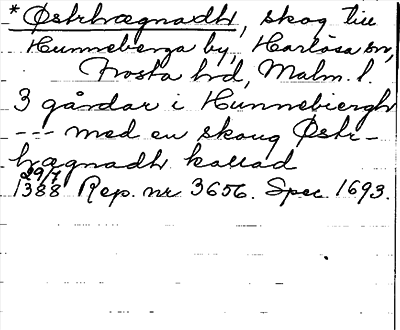 *Østrhægnadh, skog till
Hunneberga by, Harlösa sn,
Frosta hd, Malm. l.
3 gårdar i Hunnebiergh
--- med en skoug Østr-
hægnadh kallad
29/7
1388 Rep. nr 3656. Spec. 1693.